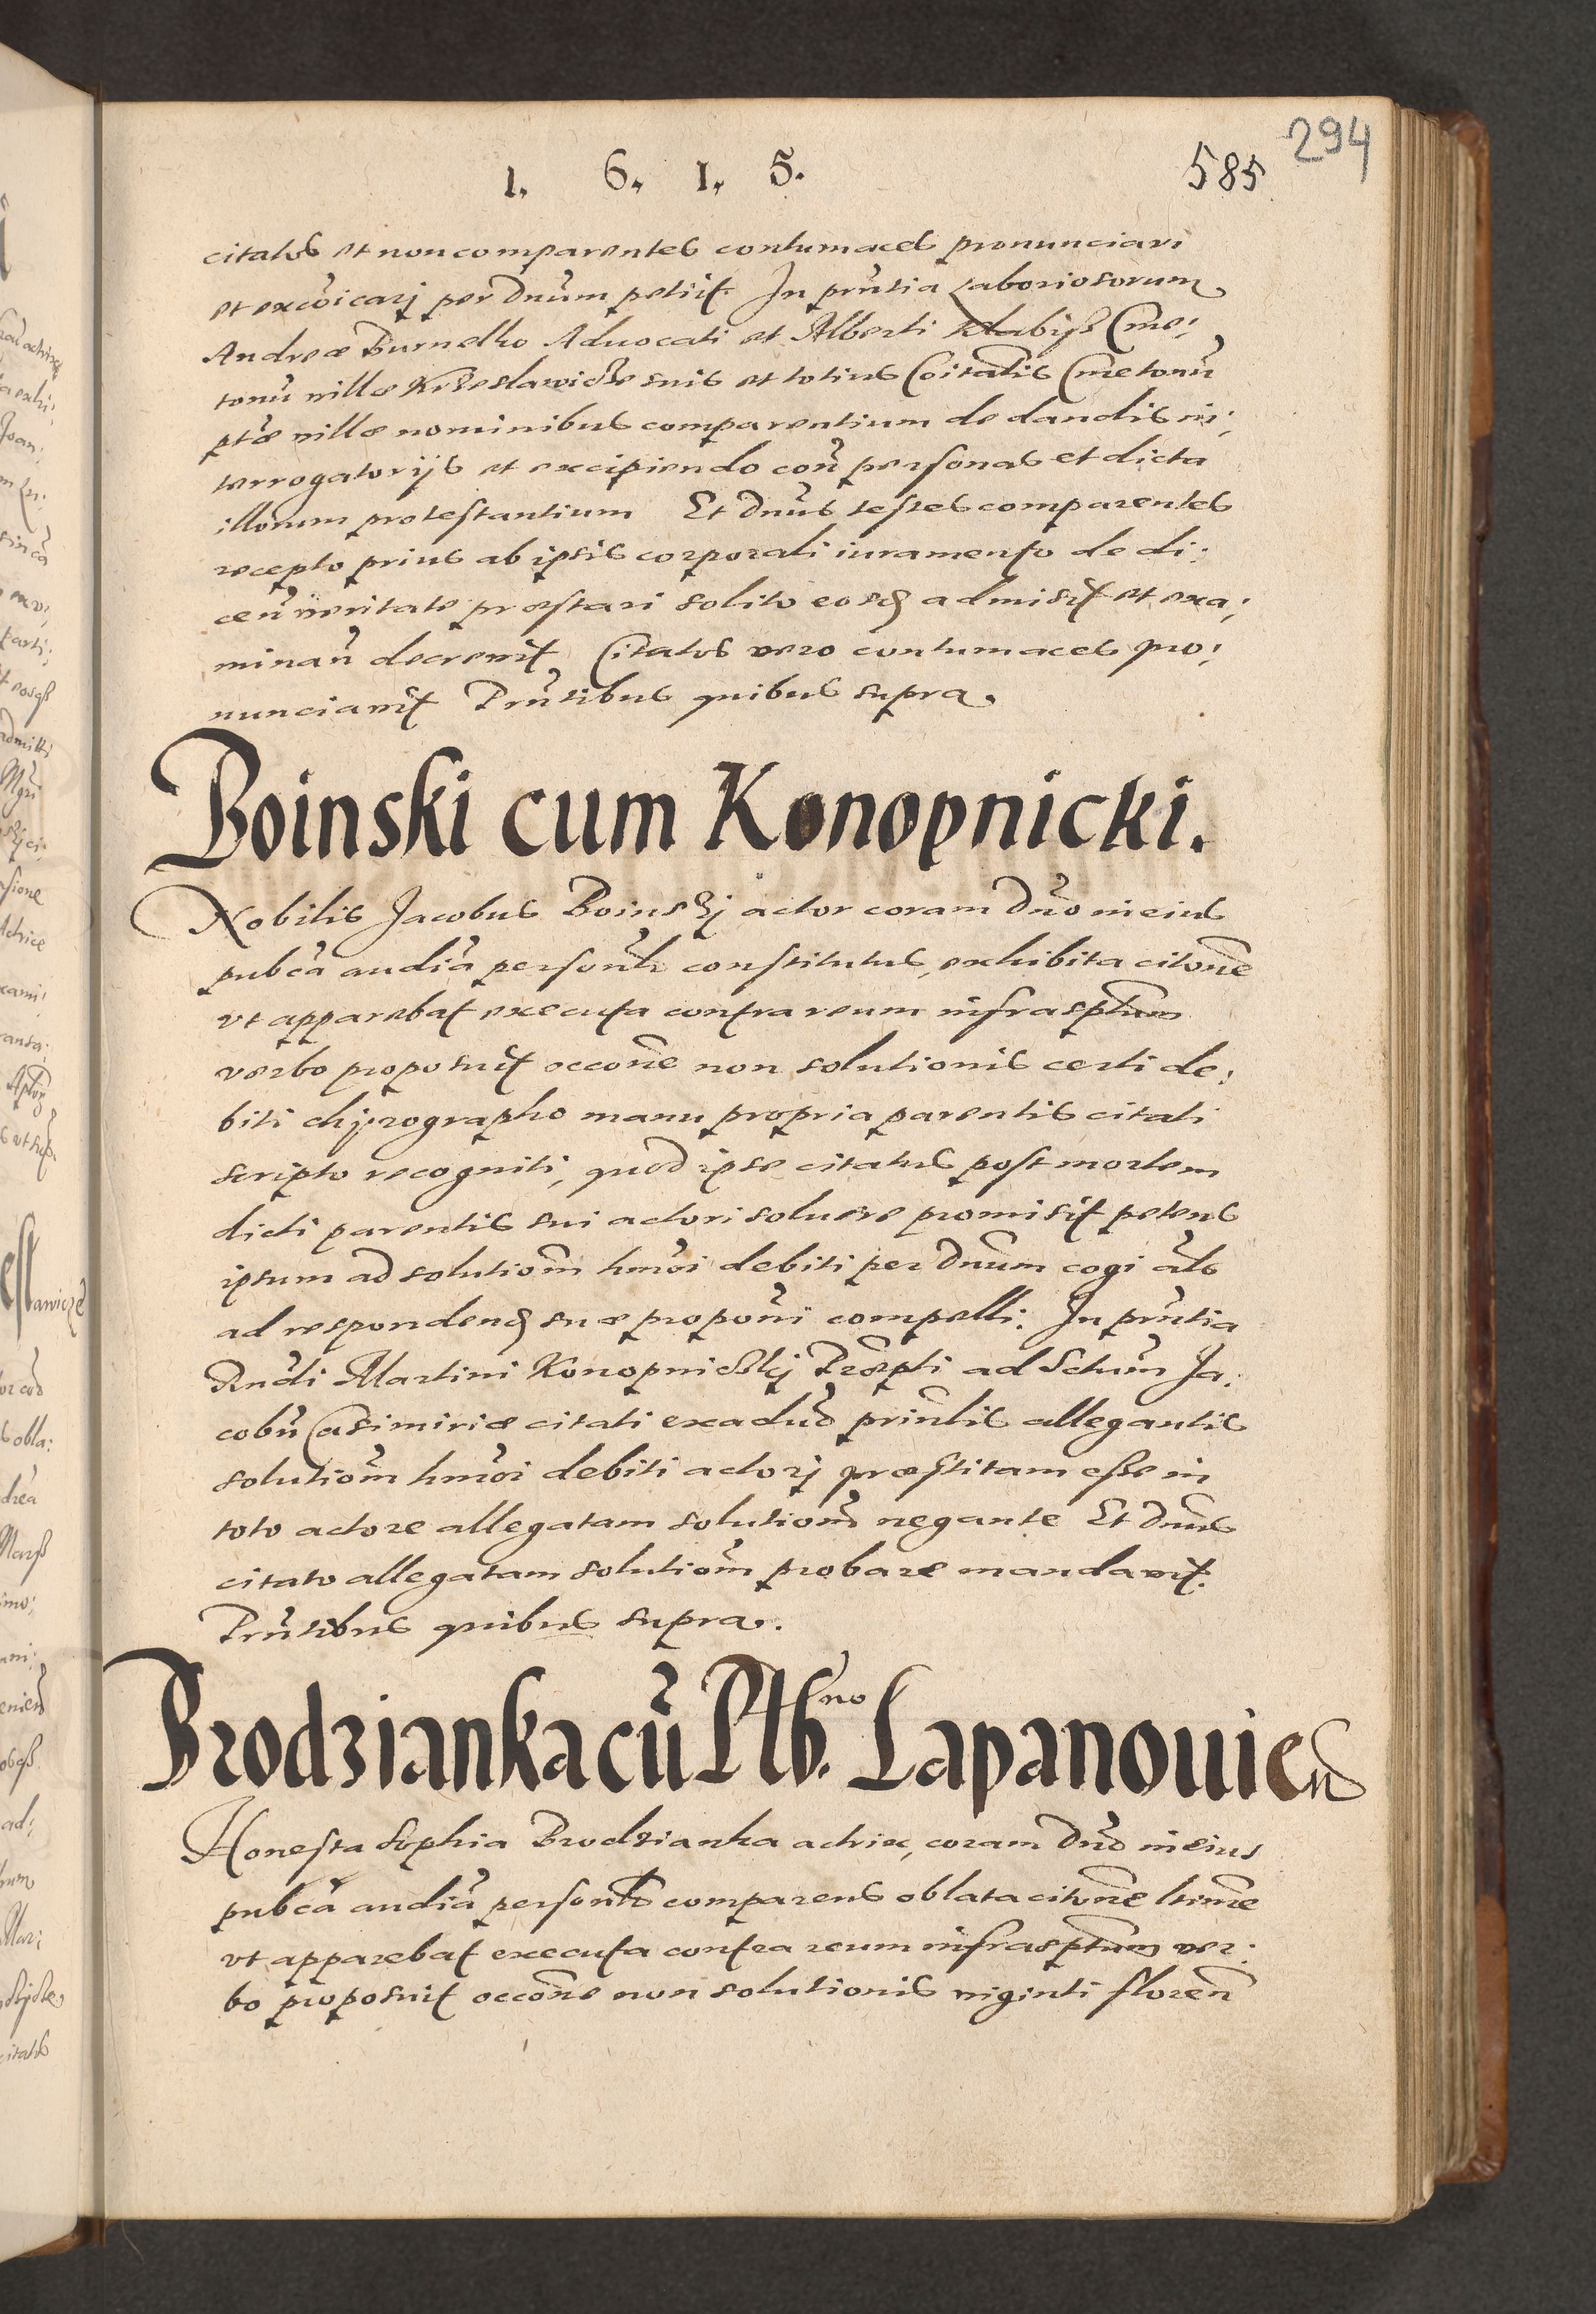 294
1. 6. 1. 5. 585
citatos et non comparentes contumaces pronunciari
et excoicari per Dnum petiit. In prntia Laboriosorum
Andreæ Burnelko Aduocati et Alberti Cme:
tonu villæ Krzeslawicze suis et totius Coitatis Cmetonu
ptæ villæ nominibus comparentium de dandis in:
terrogatorijs et excipiendo con personas et dicta
illorum protestantium Et Dnus testes comparentes
recepto prius ab ipsis corporali iuramento de di:
cen veritate præstari solito eosq admisit et exa:
minan decrevit Citatos vero contumaces pro:
nunciavit Prntibus quibus supra.
Boinski cum Konopnicki.
Nobilis Jacobus Boinskj actor coram Dno in eius
pubca audia personlr constitutus, exhibita citone
vt apparebat executa contra reum infrasptum
verbo proposuit occone non solutionis certi de:
biti chyrographo manu propria parentis citati
scripto recogniti, quod ipse citatus post mortem
dicti parentis sui actori soluere promisit petens
ipsum ad solutiom hmoi debiti per Dnum cogi als
ad respondend suæ proponi compelli. In prntia
Rndi Martini Konopnickj Præpti ad Sctum Ja:
cobu Casimiriæ citati ex aduo prinlis allegantis
solutiom hmoi debiti actorj præstitam esse in
toto actore allegatam solutiom negante Et Dnus
citato allegatam solutiom probare mandavit.
Prntibus quibus supra.
Brodziankacu Plb.no Lapanouien
Honesta Sophia Brodzianka actrix, coram Dno in eius
pubca audia personlr comparens oblata citone ltime
vt apparebat executa contra reum infrasptum ver:
bo proposuit occone non solutionis viginti floren